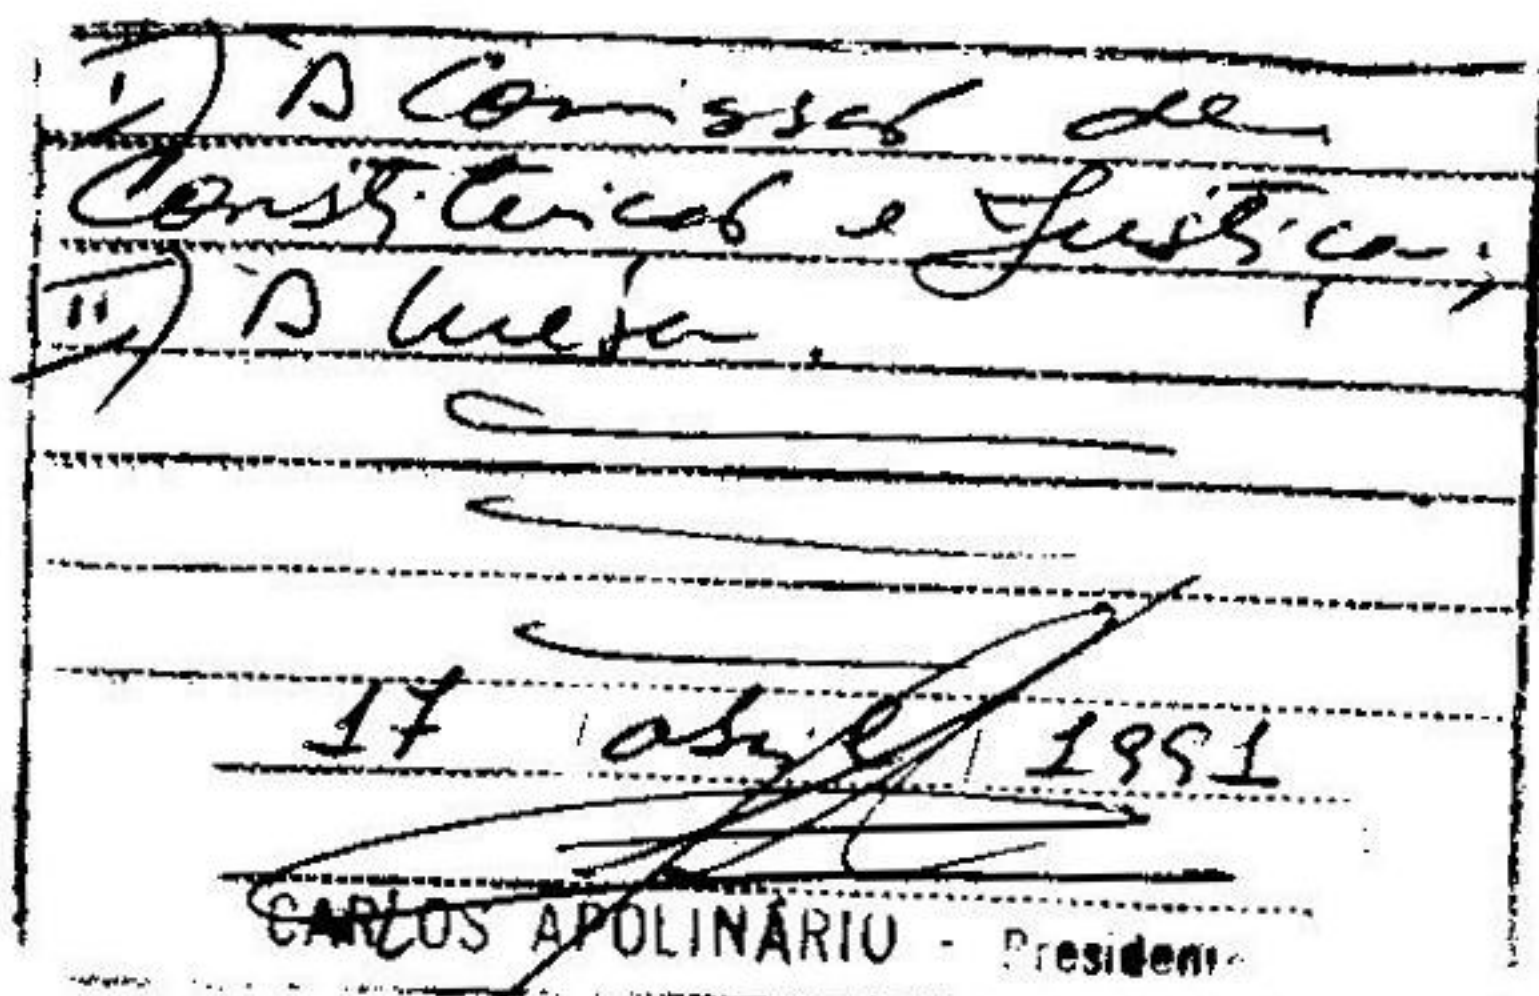 I) À Comissão de
Constituição e Justiça.
II) À Mesa.
17 / abril / 1991
CARLOS APOLINÁRIO - Presidente